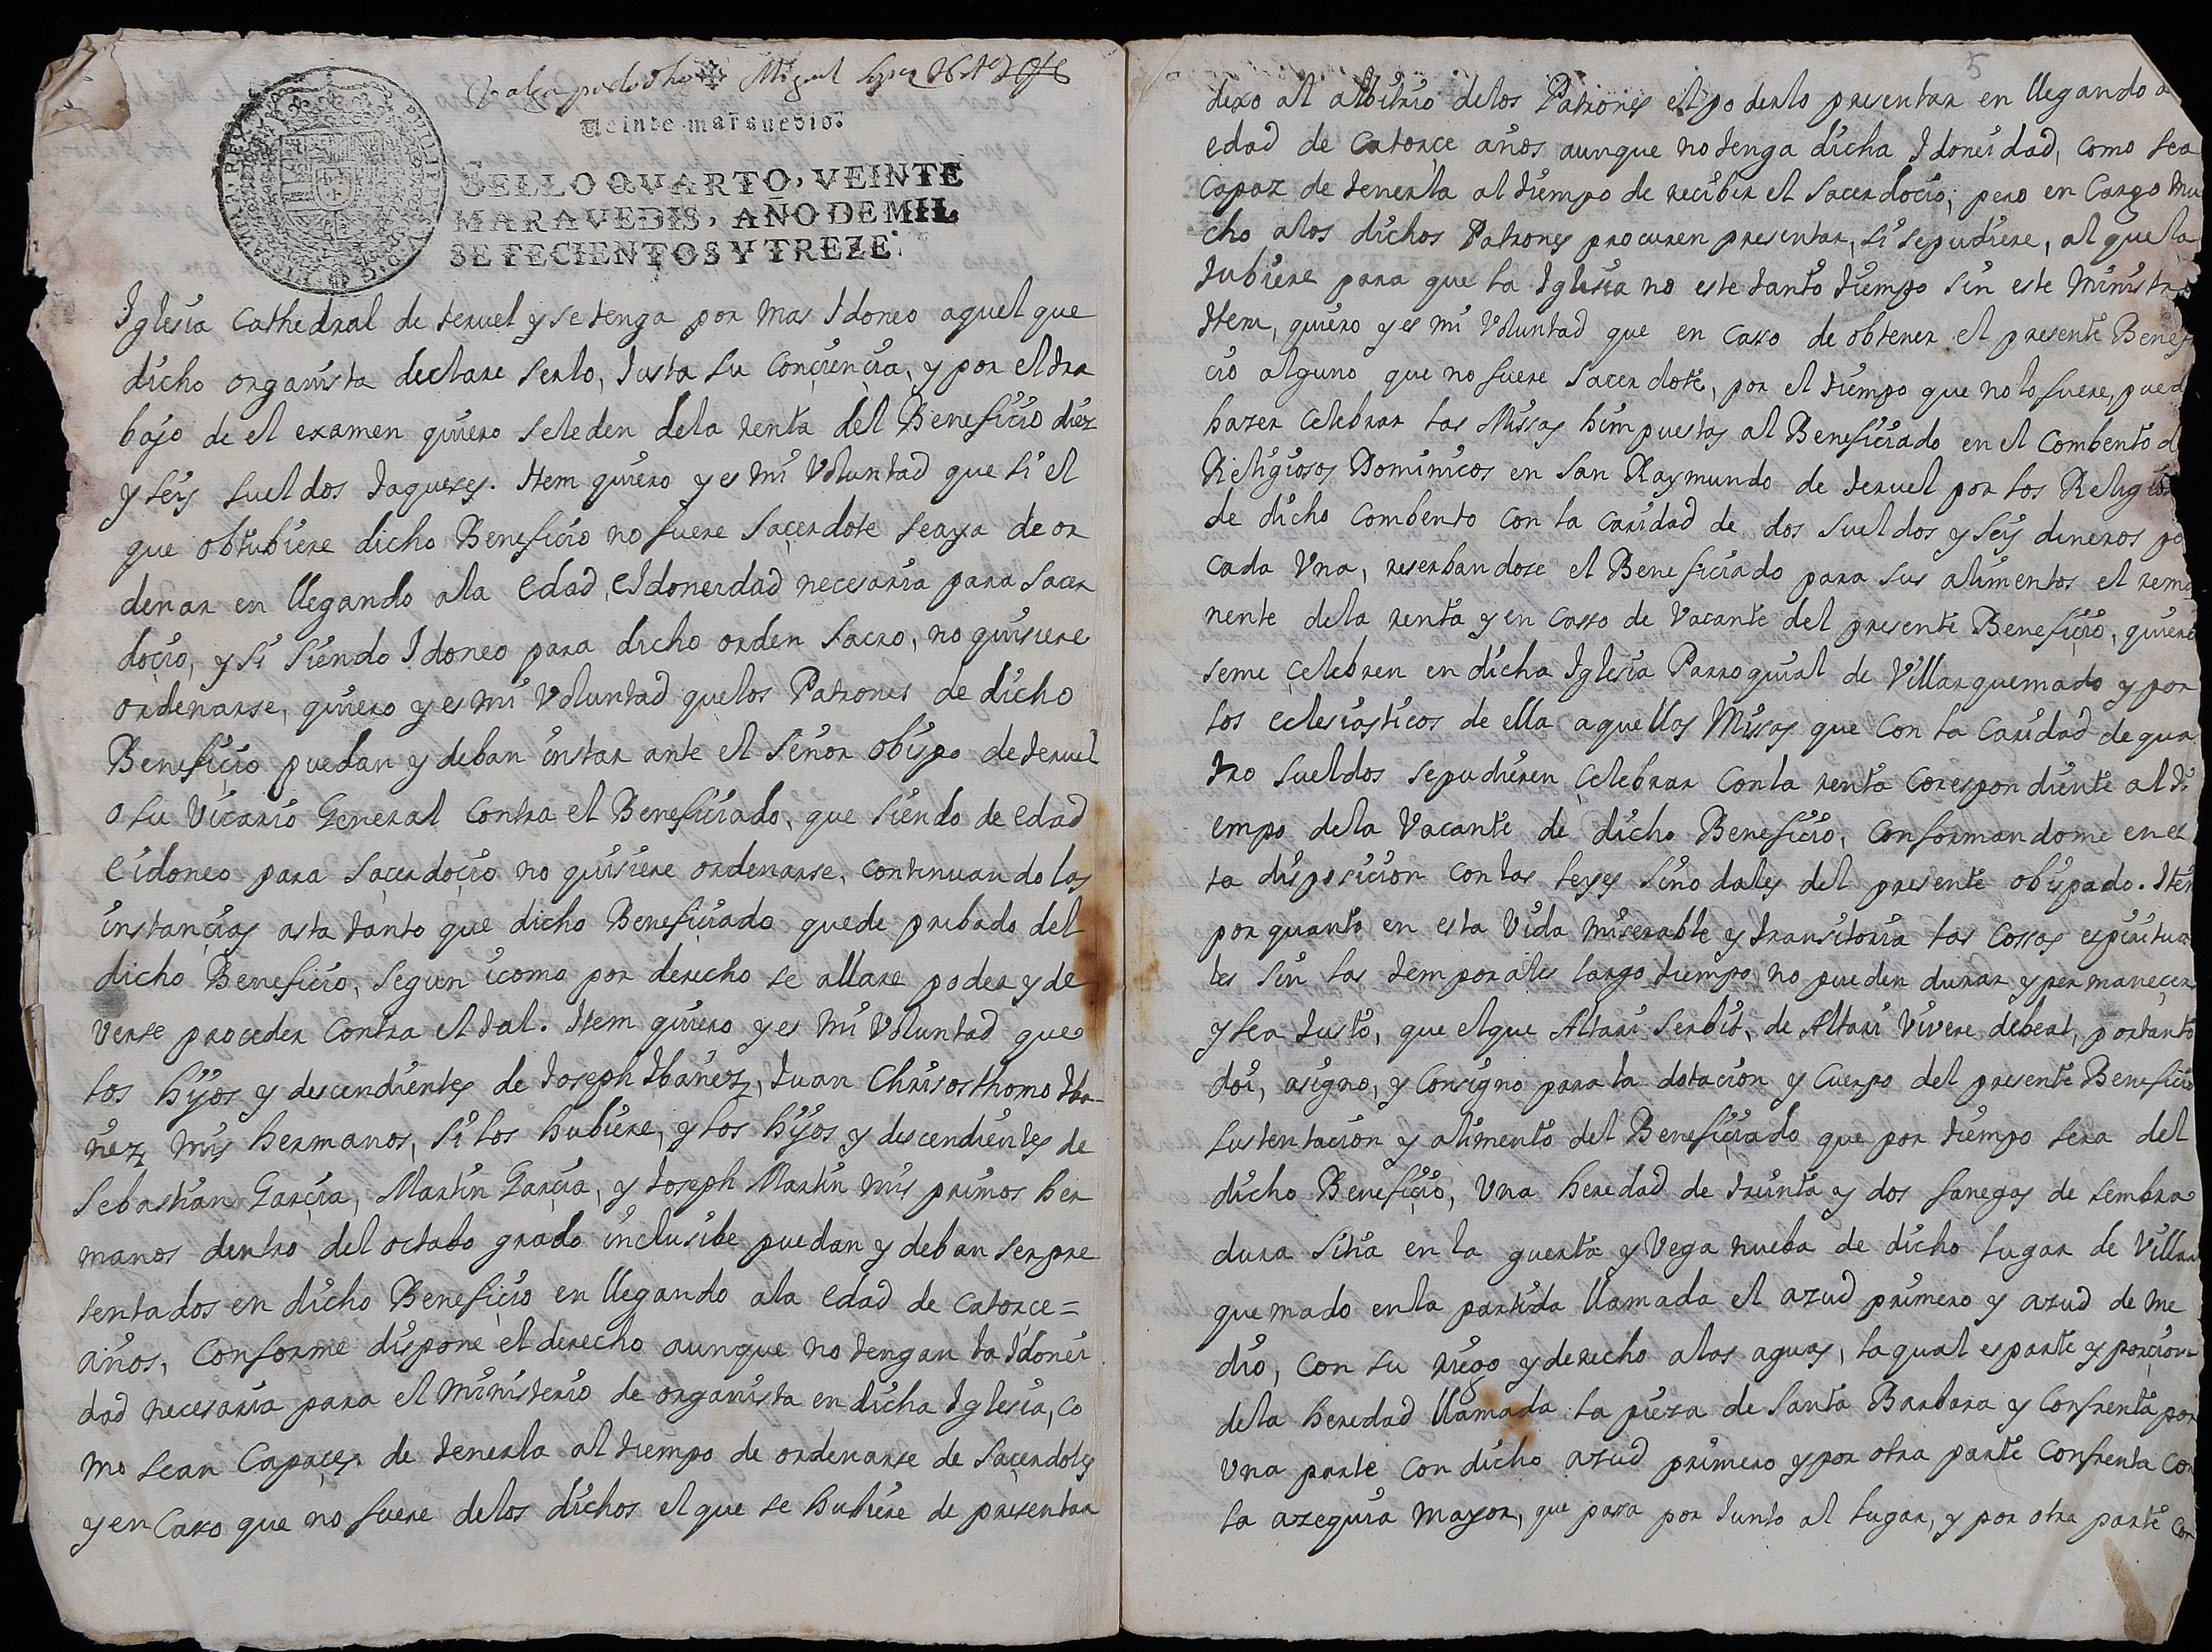 Valga por los dho Miguel
Veinte maravedis.
SELLO QVARTO, VEINTE
MARAVEDIS, AÑO DE MIL
SETECIENTOS Y TREZE.
Iglesia Cathedral de teruel y se tenga por mas Idoneo aquel que
dicho organista declare serlo, Justa su Conçiençia, y por el tra
bajo de el examen quiero seleden dela renta del Benefiçio diez
y seis sueldos Jaqueses. Item quiero y es mi Voluntad que si el
que obtubiere dicho Beneficio no fuere Saçerdote seaya de or
denar en llegando ala edad, eIdoneidad necesaria para Sacer
doçio, y si siendo Idoneo para dicho orden Sacro, no quisiere
ordenarse, quiero y es mi Voluntad quelos Patrones de dicho
Benefiçio puedan y deban instar ante el Señor obispo de teruel
o su Vicario General Contra el Benefiçiado, que siendo de edad
eidoneo para Saçerdoçio no quisiere ordenarse, continuando las
instançias asta tanto que dicho Benefiçiado quede pribado del
dicho Beneficio, Segun icomo por derecho se allare poder y de
verse proceder Contra el tal. Item quiero y es mi Voluntad que
los hijos y descendientes de Joseph Ibañez, Juan Chrisosthomo Iba-
ñez mis hermanos, si los hubiere, y los hijos y descendientes de
Sebastian Garçia, Martin Garçia, y Joseph Martin mis primos her
manos dentro del octabo grado inclusibe puedan y deban ser pre
sentados en dicho Benefiçio en llegando ala edad de Catorçe =
años, Conforme dispone el derecho aunque no tengan la Idonei
dad necesaria para el Ministerio de organista en dicha Iglesia, co
mo sean Capaçes de tenerla al tiempo de ordenarse de Saçerdotes
y en Caso que no fuere delos dichos el que se hubiere de presentar
5
dexo al albitrio delos Patrones el poderlo presentar en llegando a
edad de Catorçe años aunque no tenga dicha Idoneidad, como sea
Capaz de tenerla al tiempo de recibir el Sacerdocio; pero en Cargo mu
cho alos dichos Patrones procuren presentar, si sepudiere, al que la
tubiere para que la Iglesia no este tanto tiempo sin este Ministro
Item, quiero y es mi Voluntad que en caso de obtener el presente Benefi
cio alguno que no fuere Sacerdote, por el tiempo que no lo fuere, pued
hazer Celebrar las Missas himpuestas al Beneficiado en el Combento d
Religiosos Dominicos en San Raymundo de teruel por los Religios
de dicho Combento con la caridad de dos sueldos y seis dineros po
Cada Una, reserbandose el Beneficiado para sus alimentos el rema
nente dela renta y en Casso de Vacante del presente Benefiçio, quiero
seme Çelebren en dicha Iglesia Parroquial de Villarquemado y por
los eclesiasticos de ella aquellas Missas que con la Caridad de qua
tro sueldos sepudieren Çelebrar Conla renta Corespondiente al ti
empo dela Vacante de dicho Beneficio, Conformandome en es
ta disposicion con las leyes Sinodales del presente obispado. Item
por quanto en esta Vida miserable y transitoria las Cossas espiritua
les sin las temporales largo tiempo no pueden durar y permaneçer
y sea Justo, que elque Altari Serbit, de Altari Vivere debeat, portanto
doi, asigno, y Consigno para la dotacion y Cuerpo del presente Beneficio
sustentacion y alimento del Benefiçiado que por tiempo sera del
dicho Benefiçio, Una heredad de treinta y dos fanegas de sembra
dura Sitia en la guerta y Vega nueba de dicho lugar de Villar
quemado enla partida llamada el azud primero y azud de me
dio, con su riego y derecho alas aguas, laqual es parte y porcion
dela heredad llamada la pieza de Santa Barbara y Confrenta por
Una parte Con dicho azud primero y por otra parte Confrenta Con
la azequia mayor, que pasa por Junto al lugar, y por otra parte con